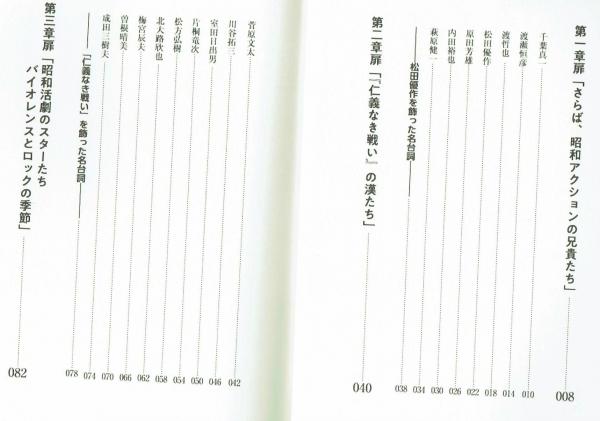 第一章扉「さらば、昭和アクションの兄貴たち」 008
千葉真一 010
渡瀬恒彦 014
渡哲也 018
松田優作 022
原田芳雄 026
内田裕也 030
萩原健一 034
松田優作を飾った名台詞 038
第二章扉「『仁義なき戦い』の漢たち」 040
菅原文太 042
川谷拓三 046
室田日出男 050
片桐竜次 054
松方弘樹 058
北大路欣也 062
梅宮辰夫 066
曽根晴美 070
成田三樹夫 074
「仁義なき戦い」を飾った名台詞 078
第三章扉「昭和活劇のスターたち
バイオレンスとロックの季節」 082